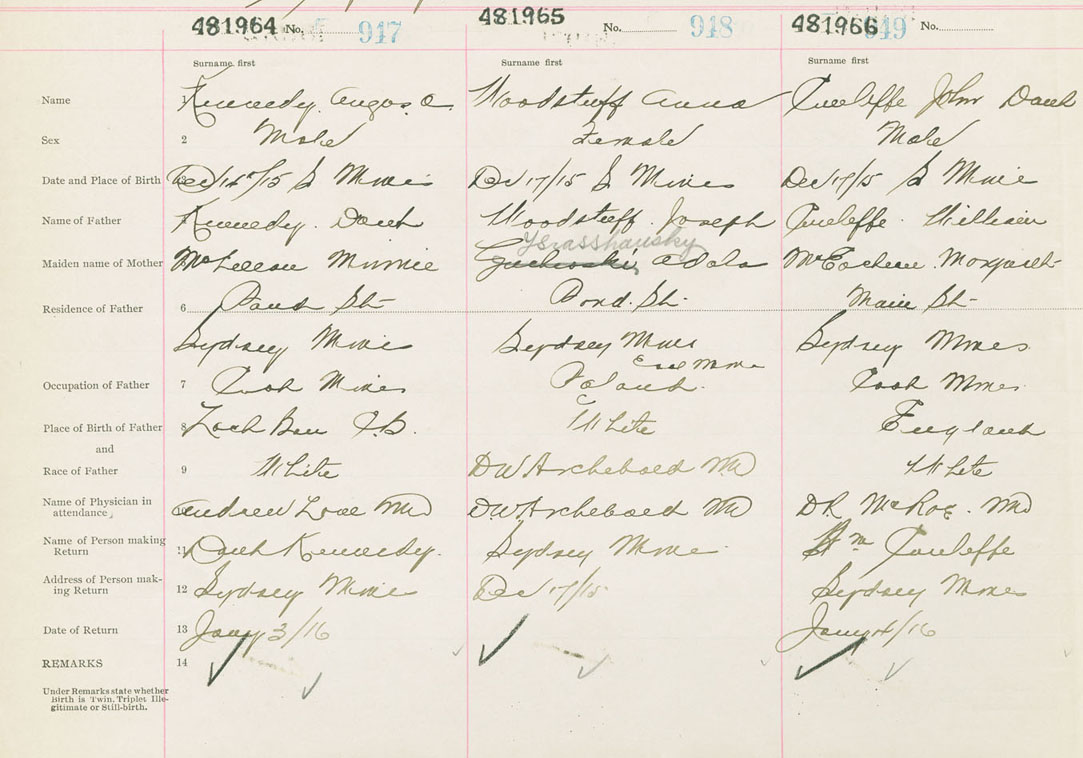 481964 No. 917
481965 No. 948
481966 No. 949
Surname first
Surname first
Surname first
Name
1 Kennedy. Angus
Woodstuff Anna
John
Sex
2 Male
Female
Male
Date and Place of Birth
Dec 15 S Mines
Dec 17/15 S Mines
Dec 17/15 S Mines
Name of Father
Kennedy.
Woodstuff. Joseph
William
Ysrasshansky
Maiden name of Mother
McLellan Minnie
Adola
Residence of Father
6 St
Pond. St.
Main St
Sydney Mines
Sydney Mines
Sydney Mines
Coal Mine
Occupation of Father
7 Mines
Poland.
Mines
Place of Birth of Father
8 Loch Ban C.B.
White
England
and
Race of Father
9 White
DW Archebald MD
White
Name of Physician in
attendance
Andrew Love MD
DW Archebald MD
MD
Name of Person making
Return
11 Kennedy.
Sydney Mines
Wm
Address of Person mak-
ing Return
12 Sydney Mines
Dec 17/15
Sydney Mines
Date of Return
13 Jany 3/16
Jany 4/16
REMARKS
14
Under Remarks state whether
Birth is Twin, Triplet Ille-
gitimate or Still-birth.